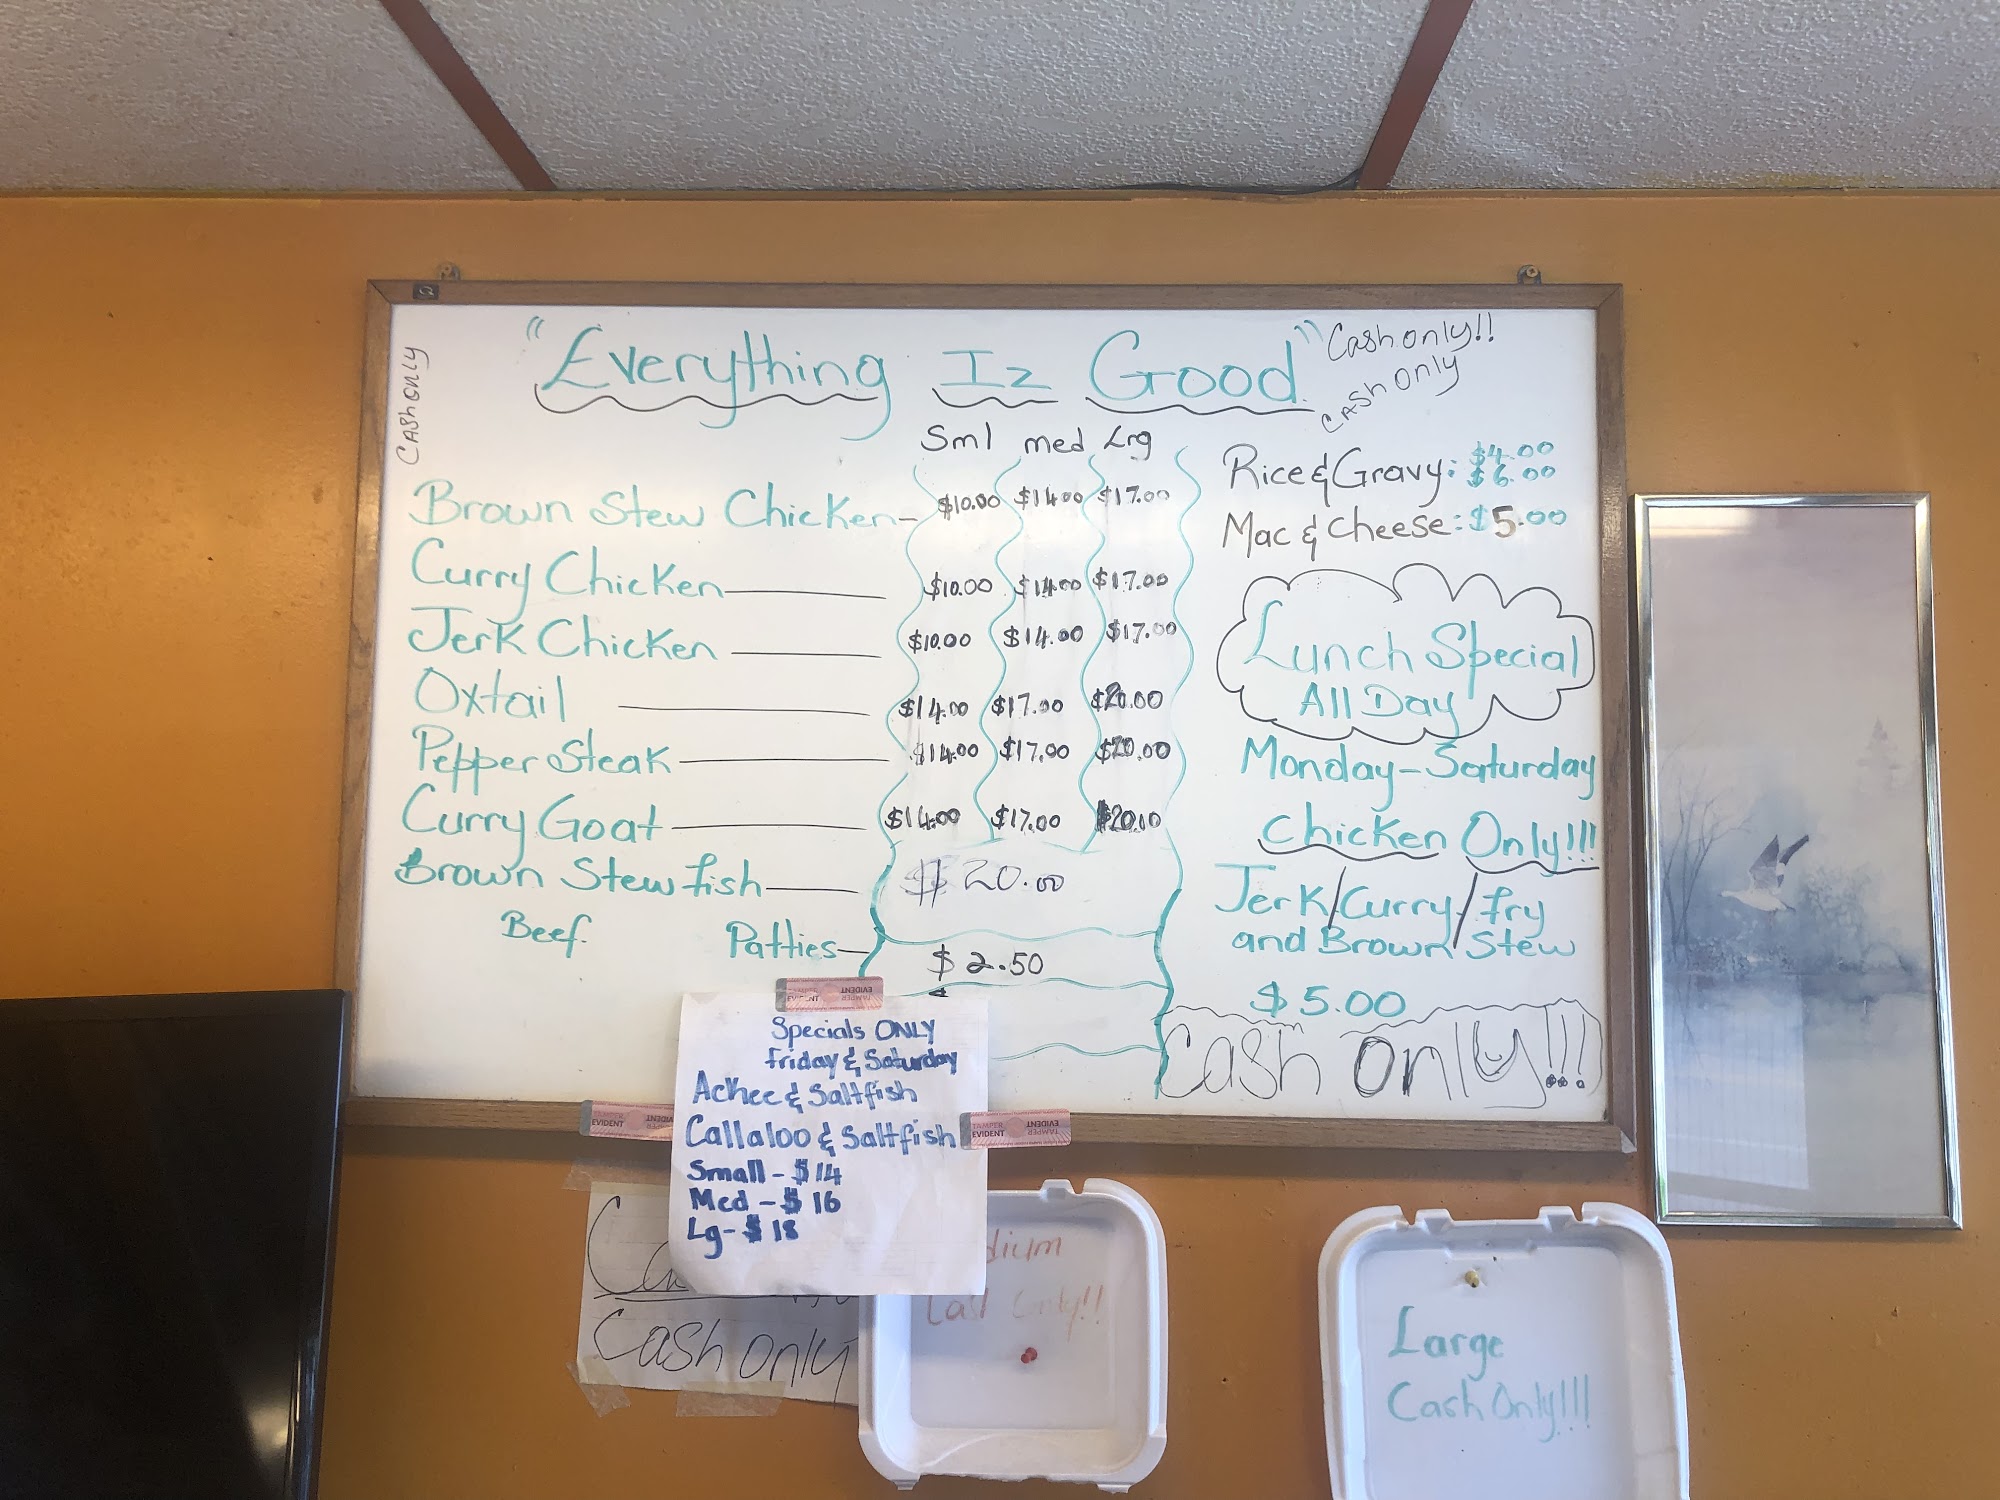 "Everything Iz Good"
Cash only!!
Cash only
Cash only
Sml med Lrg
Brown Stew Chicken- $10.00 $14.00 $17.00
Curry Chicken $10.00 $14.00 $17.00
Jerk Chicken $10.00 $14.00 $17.00
Oxtail $14.00 $17.00 $20.00
Pepper Steak $14.00 $17.00 $20.00
Curry Goat $14.00 $17.00 $20.00
Brown Stew fish $20.00
Beef Patties $2.50
Rice & Gravy: $4.00
$6.00
Mac & Cheese: $5.00
Lunch Special
All Day
Monday-Saturday
Chicken Only!!!
Jerk/Curry/fry
and Brown Stew
$5.00
Cash only!!!
TAMPER EVIDENT
Specials ONLY
friday & Saturday
Ackee & Saltfish
Callaloo & Saltfish
Small - $14
Med - $16
Lg - $18
TAMPER EVIDENT
TAMPER EVIDENT
Cash only
Large
Cash Only!!!